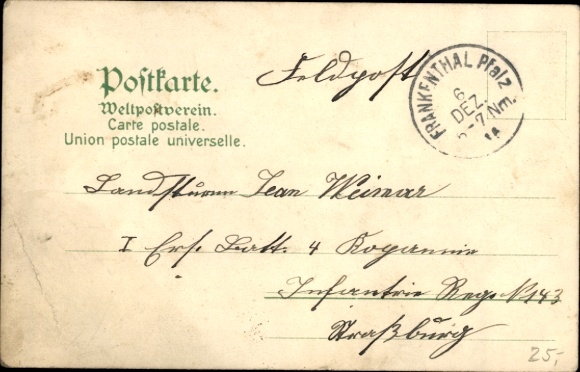 Postkarte.
Weltpostverein.
Carte postale.
Union postale universelle.
Feldpost
FRANKENTHAL Pfalz
6
DEZ.
-7 Nm.
14
Landsturm Jean Weimar
I Ers. Batt. 4 Kopannie
Infantrie Reg. N 143
Straßburg
25,-